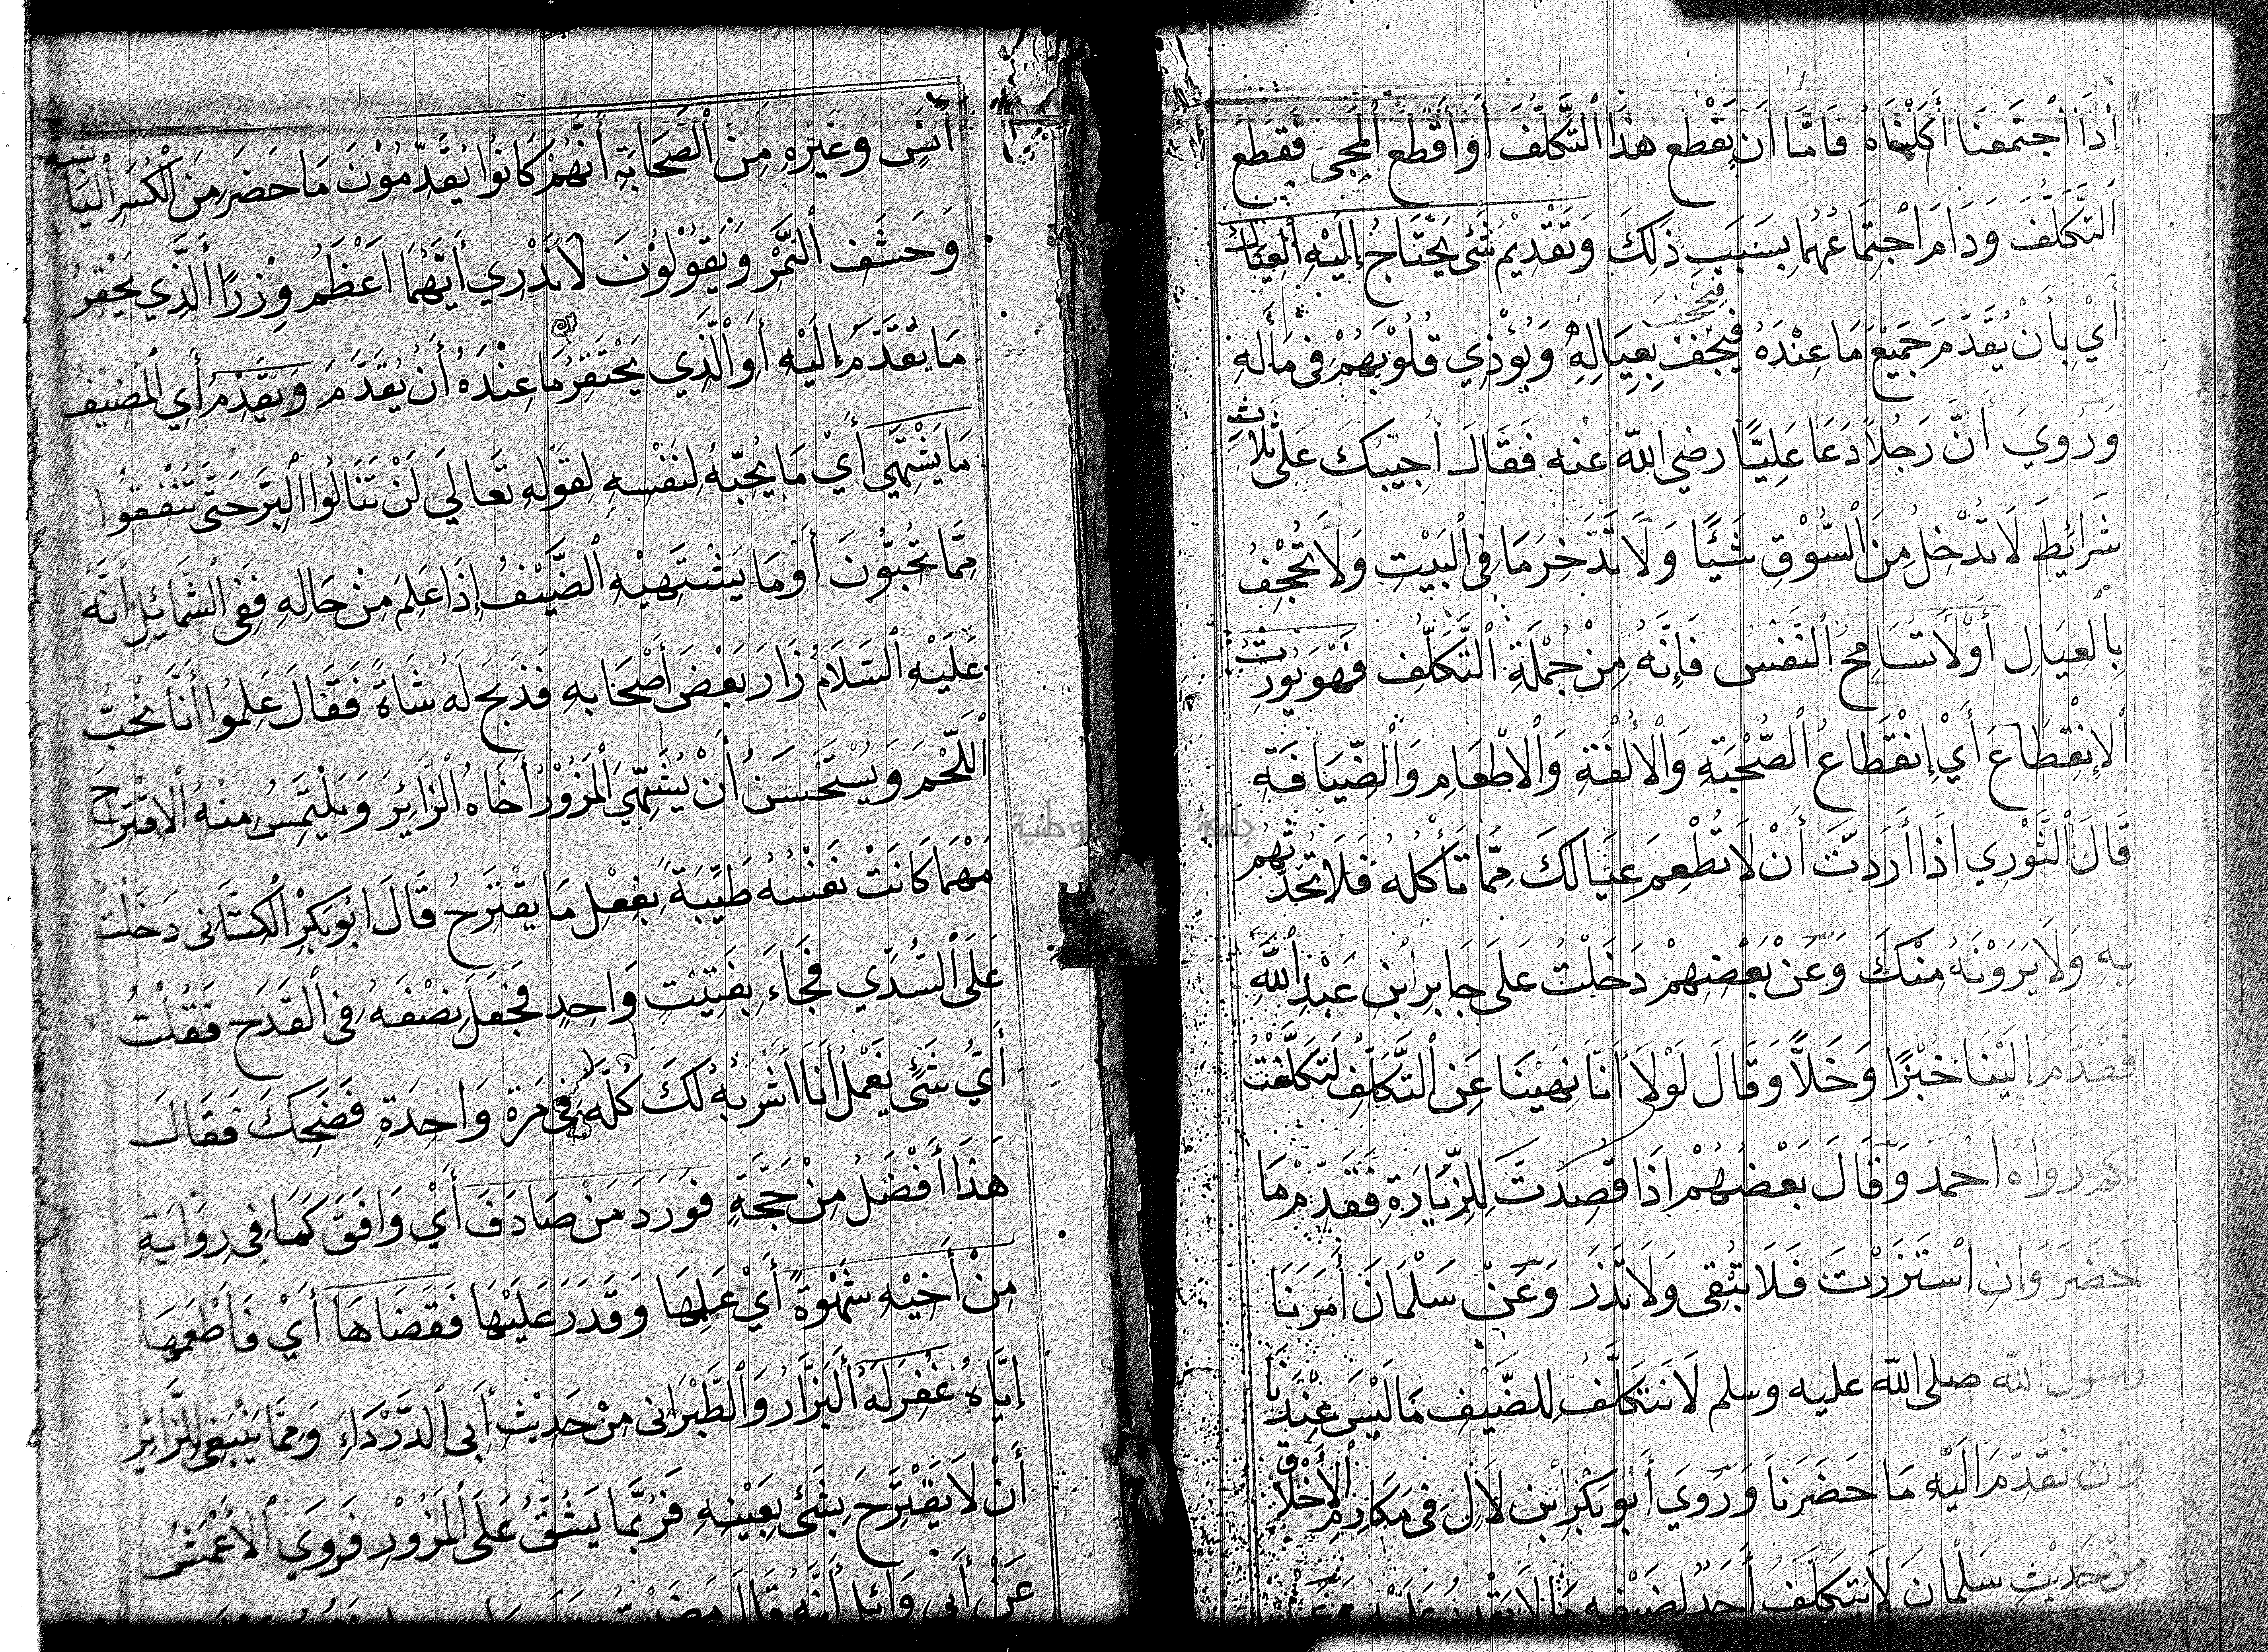 إِذَا اْجْتَمَعْنَا أَكَلْنَاهُ فَامَّا أَن تَقْطع هذَا اْلتَّكَلُّفَ أَوأَقْطَع اْلمَجِى فَقطعَ
اَلتَّكَلُّفَ وَدَامَ اجْتِمَاعُهُما بِسَبَبِ ذَلِكَ وَتَقْدِيمُ شَئ يَحْتَاجُ إِلَيْهِ اْلعِيَالُ
أَيْ بِأَنْ يُقَدّمَ جَمِيْعَ مَا عِنْدَهُ فَيُجْحِف بِعِيَالِهِ وَيُؤْذِي قُلُوْبَهُمْ فِى مَأْلِهِ
وَرُوِيَ أَنَّ رَجُلاً دَعَا عَلِيًّا رضي الله عنه فَقَالَ أُجِيْبُكَ عَلى ثَلاثِ
شَرَائِطَ لَا تُدْخِلُ مِنَ اْلسُّوْقِ شَيْئًا وَلَا تَدَّخِرَ مَا فِى اْلبَيْتِ وَلَا تُجْحِفُ
بِالْعِيَالِ أَوْلَا تُسَامِحُ اْلنَّفْسُ فَإِنَّهُ مِنْ جُمْلَةِ التَّكَلُّفِ فَهُوَ يُورِثُ
اْلاِنْقِطَاعَ أَيْ إِنْقِطَاعُ اْلصُّحْبَةِ وَاْلأُلْفَةِ وَاْلاِطْعَامِ وَاْلضِّيَافَةِ
قَالَ اْلثَّوْرِي اذَا أَرَدتَّ أَنْ لَا تُطْعِمَ عَيَالكَ مِمَّا تَأْكُلُهُ فَلَا تُحَدِّثْهُم
بِهِ وَلَا يَرَوْنَهُ مِنْكَ وَعَنْ بَعْضِهِمْ دَخَلْتُ عَلَى جَابِرِ اْبْنِ عَبْدِ اْللهِ
فَقَدَّمَ إِلَيْنَا خُبْزًا وَخَلاًّ وَقَالَ لَوْلَا أَنَّا نُهِيْنَا عَنِ اْلتَّكَلُّفِ لَتَكَلَّفْتُ
لكُم رَوَاهُ احْمد وَقَالَ بَعْضُهُمْ اذَا قُصِدتَّ لِلزِّيَارَةِ فَقَدِّمْ مَا
حَضَرَ وَإِن اسْتَزَرْتَ فَلَا تُبْقِى وَلَا تَذَرْ وَعَنْ سَلْمَانَ أَمَرَنَا
رَسُول الله صلى الله عليه وسلم لَا نَتَكَلَّفُ لِلضَّيْفِ مَا لَيْسَ عِنْدَنَا
وَأَنْ نُقَدِّمَ الَيْهِ مَا حَضَرَنَا وَرُوِيَ أَبُوْ بَكْرِ اْبْن لَالٍ فِى مَكَارِمِ الأَخْلَاقِ
مِنْ حَدِيْثِ سَلْمَانَ لَا يَتَكَلَّفُ أَحَدٌ لِضَيْفِهِ مَا لَا يَقْدِرُ عَلَيْهِ
أَنَسٍ وغَيْرِهِ مِنَ اْلصَّحَابَةِ أَنَّهُمْ كَانُوا يُقَدِّمُوْنَ مَا حَضَرَ مِنَ الْكُسَرِ اْليَابِسَةِ
وَحَشَفِ اْلتَّمْرِ وَيَقُوْلُوْنَ لَا نَدْرِي أَيُّهُمَا اَعْظَمُ وِزْرًا أَلَّذِي يَحْقِرُ
مَا يُقَدَّمُ إِلَيْهِ أَوِ اْلَّذِي يَحْتَقِرُ مَا عِنْدَهُ أَن يُقَدَّمَ وَيُقَدِّمُ أَي الْمُضِيْفُ
مَا يَشْتَهِي أَيْ مَا يُحِبُّهُ لِنَفْسِهِ لِقَوْلِهِ تَعَالَي لَنْ تَنَالُوا اْلبِرَّ حَتَّى تُنْفِقُوا
مِمَّا تُحِبُّوْنَ أَوْ مَا يَشْتَهِيْهِ اْلضَّيْفُ إِذَا عَلِمَ مِنْ حَالِهِ فَفِى اْلشَّمَائِلِ أَنَّهُ
عَلَيْهِ اْلسَّلَامُ زَارَ بَعْضَ أَصْحَابهِ فَذَبَح لَهُ شَاةً فَقَالَ عَلِمُوا أَنَّا نُحِبُّ
اْللَّحْمَ وَيُسْتَحْسَنُ أَنْ يُشَهِّيَ اْلمَزُوْرُ أَخَاهُ اْلزَّائِرَ وَيَلْتَمِسُ مِنْهُ اْلاِقْتِرَاحَ
مَهْمَا كَانَتْ نَفْسُهُ طَيِّبَةً بِفِعْلِ مَا يَقْتَرِحُ قَالَ ابُو بَكْرِ الْكِتَّانِى دَخَلْتُ
عَلَى اْلسُّدِّي فَجَاءَ بِفَتِيْتٍ وَاحِدٍ فَجَعَلَ نِصْفَهُ فِى اْلقَدَحِ فَقُلْتُ
أَيُّ شَئٍ يَعْمَلُ أَنَا أَشْرَبُهُ لَكَ كُلَّهُ فِى مَرَّة وَاحِدَةٍ فَضَحِكَ فَقَالَ
هَذَا أَفْضَلُ مِنْ حَجَّةٍ فَوَرَدَ مَنْ صَادَفَ أَيْ وَافَقَ كَمَا فِى رِوَايَةٍ
مِنْ أَخِيْهِ شَهْوَةً أَيْ عَلِمَهَا وَقَدَرَ عَلَيْهَا فَقَضَاهَا أَيْ فَأَطْعَمَهَا
إِيَّاهُ غُفِرَ لَهُ أَلْبَزَّارُ وَالْطَّبْرَانِى مِنْ حَدِيْثِ أَبِى اْلدَّرْدَاءِ وَمِمَّا يَنْبَغِى لِلزَّائِرِ
أَنْ لَا يَقْتَرِحَ بِشَئ بِعَيْنِهِ فَرُبَّمَا يَشُقُّ عَلَى الْمَزُوْرِ فَرَوَي اْلأَعْمَشُ
عَنْ أَبِي وَائِل أَنَّهُ قَالَ مَضَيْتُ